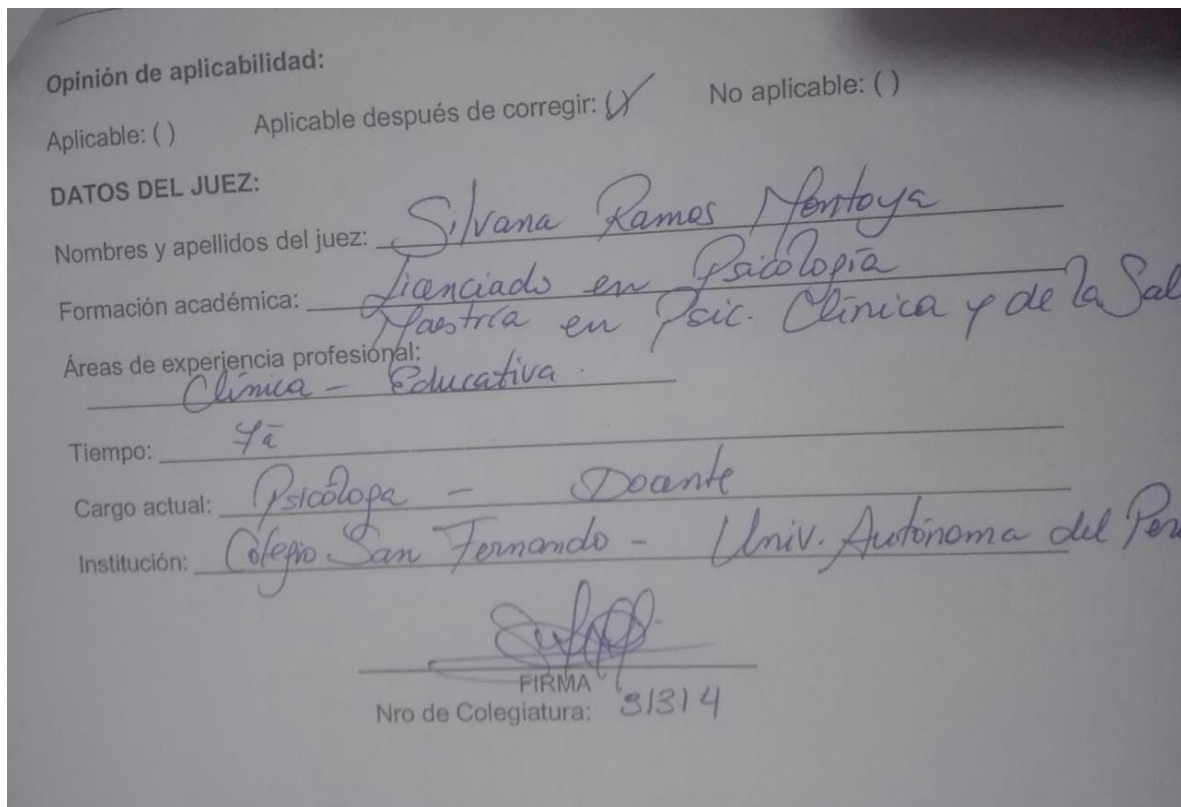 Opinión de aplicabilidad:
Aplicable: ( ) Aplicable después de corregir: (✓) No aplicable: ( )
DATOS DEL JUEZ:
Nombres y apellidos del juez: Silvana Ramos Montoya
Formación académica: Licenciado en Psicología
Maestría en Psic. Clínica y de la Sal
Áreas de experiencia profesional:
Clínica - Educativa.
Tiempo:
Cargo actual: Psicóloga - Docente
Institución: Colegio San Fernando - Univ. Autónoma del Per
FIRMA
Nro de Colegiatura: 31314